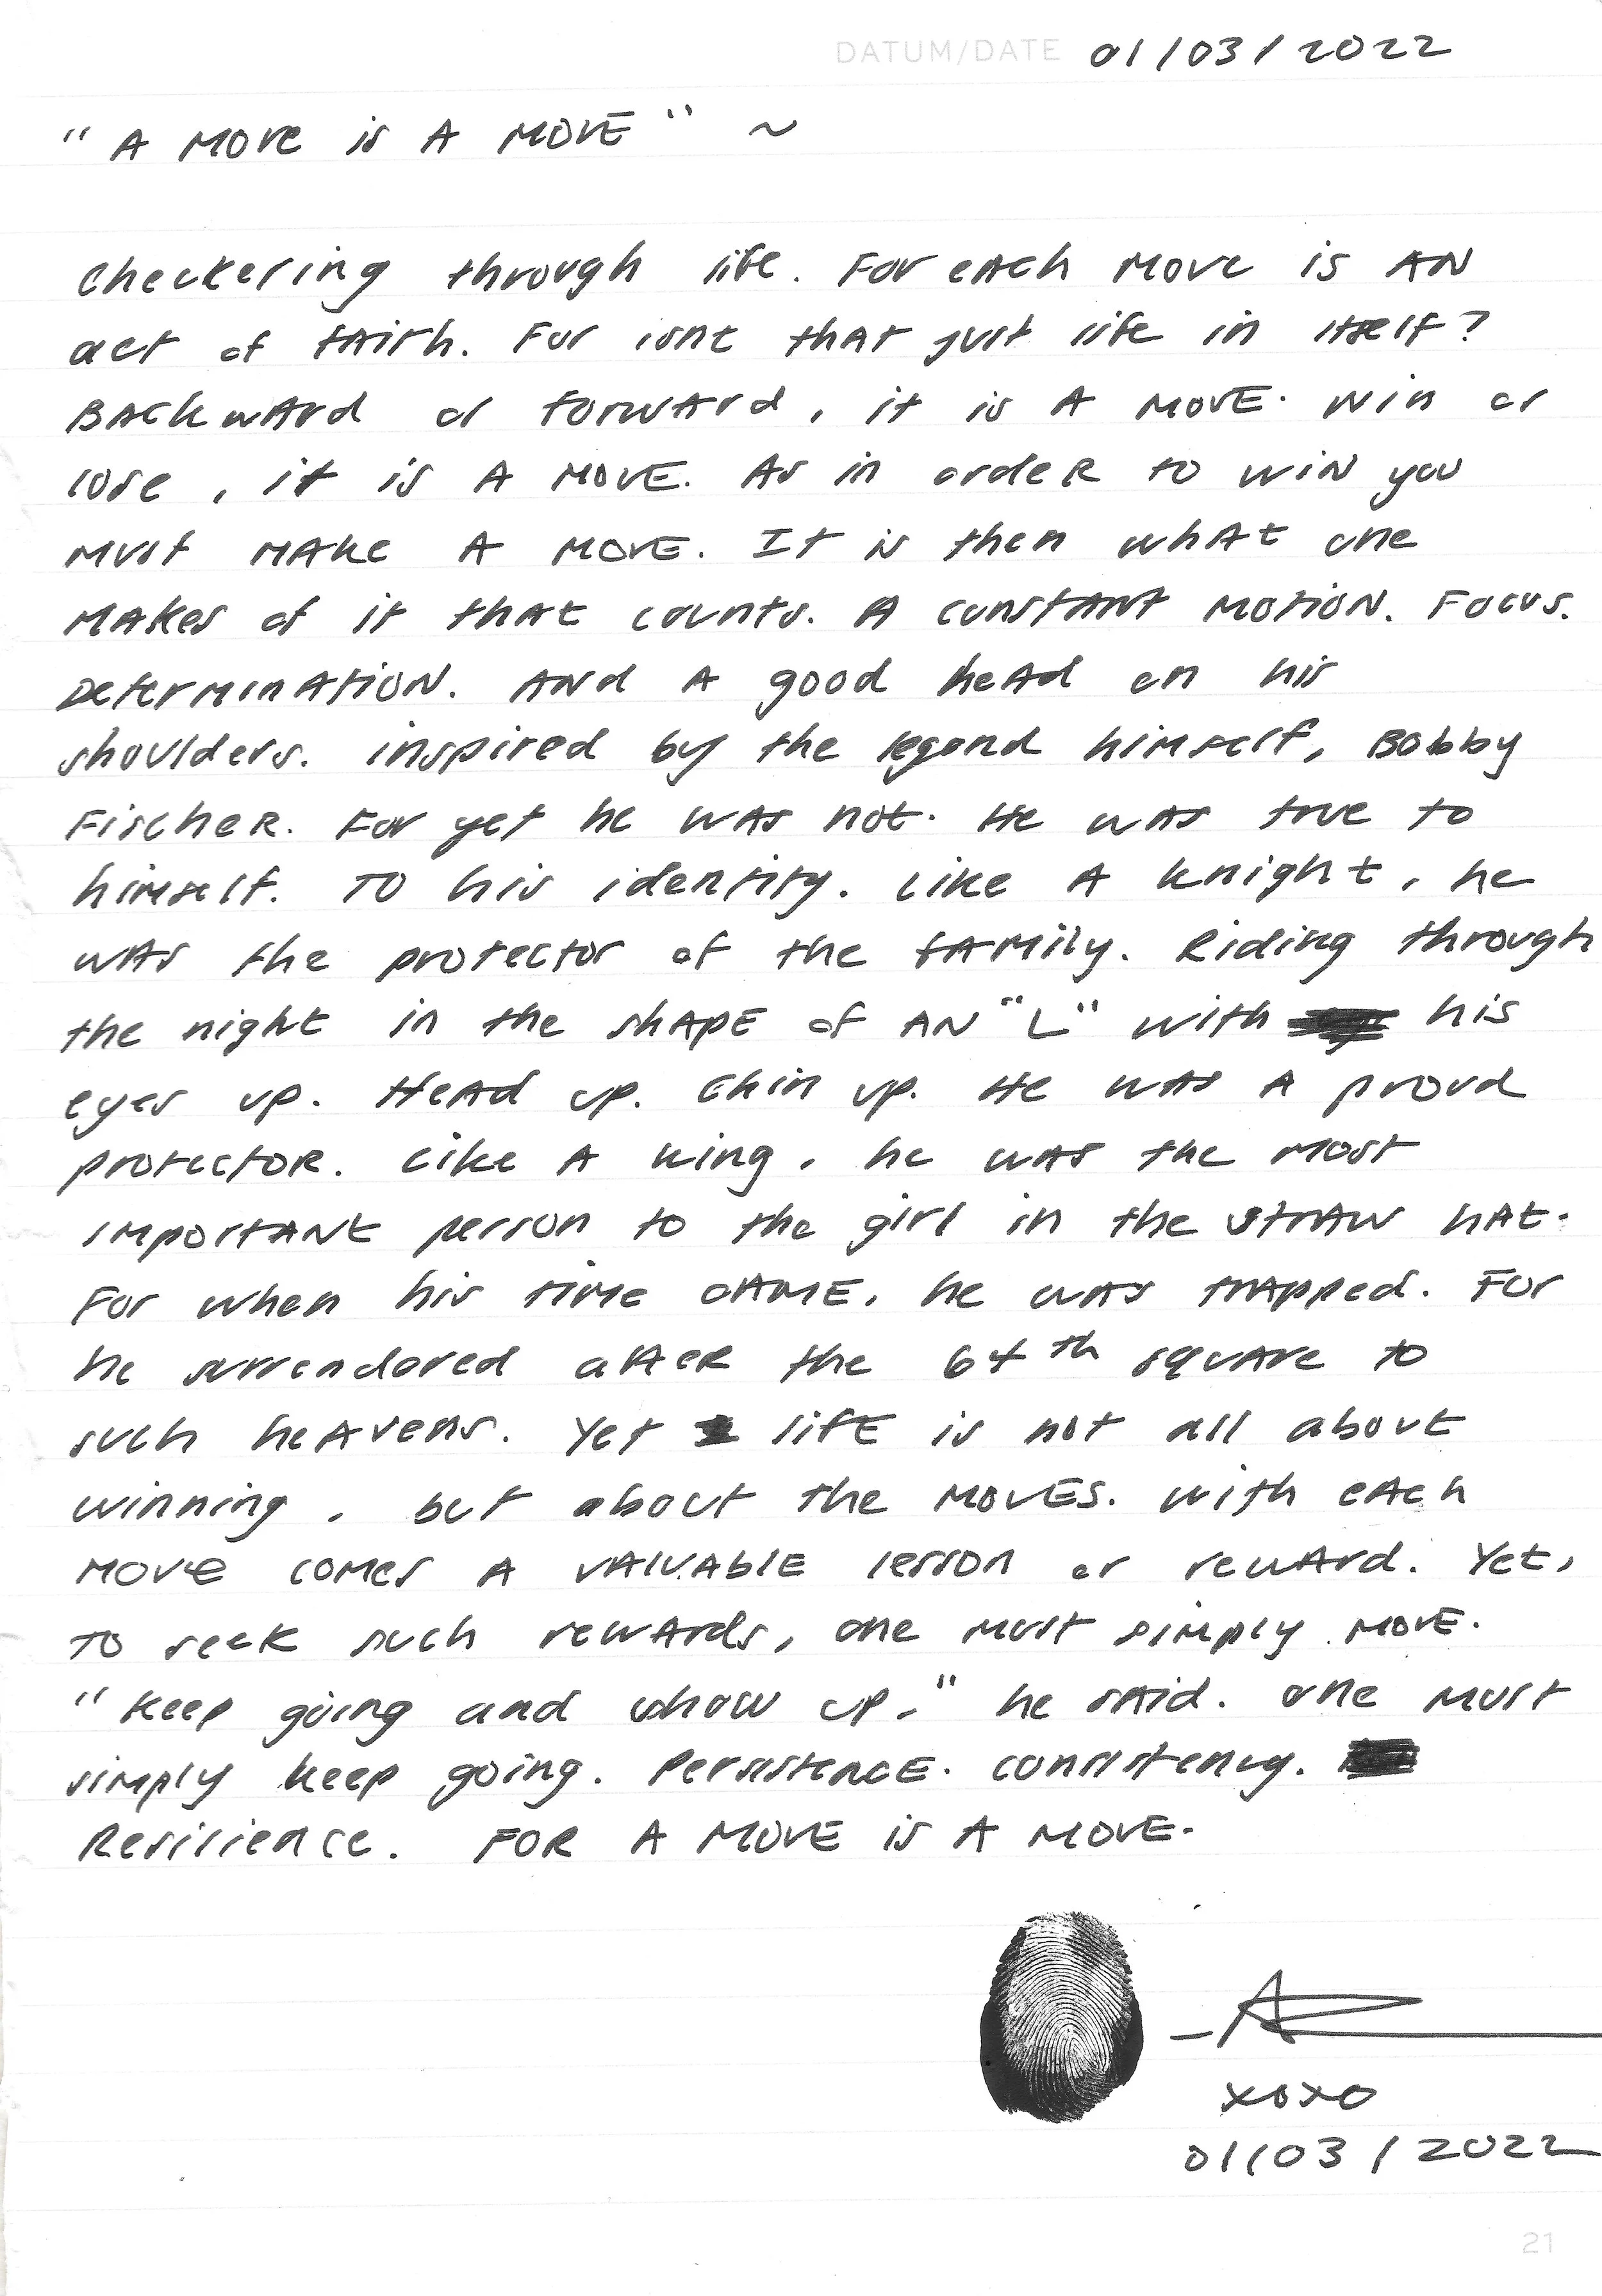 DATUM/DATE 01/03/2022
"A MOVE is A MOVE" ~
Checkering through life. For each MOVE is AN
act of fAith. For isnt thAt just life in itself?
BAckwArd or forwArd, it is A MOVE. Win or
lose, it is A MOVE. As in order to WiN you
must MAke A MOVE. It is then whAt one
MAkes of it thAt counts. A constAnt MOTION. Focus.
DeterminAtiON. ANd A good heAd on his
shoulders. inspired by the legend himself, Bobby
FischeR. For yet he wAs not. He wAs true to
himself. TO his identity. Like A knight, he
wAs the protector of the fAMily. Riding through
the night in the shAPE of AN "L" with his
eyes up. HeAd up. Chin up. He wAs A proud
protectOR. Like A king, he wAs the most
importANt person to the girl in the strAw hAt.
For when his time cAME, he wAs trApped. For
he surrendored afteR the 64th squAre to
such heAvens. Yet lifE is not all about
winning, but about the MOVES. With eAch
MOVe comes A vAluAblE lesson or rewArd. Yet,
TO seek such rewArds, one must simply MOVE.
"Keep going and show up," he sAid. One must
simply keep going. PersistencE. Consistency.
Resilience. FOR A MOVE is A MOVE.
- A
xoxo
01/03/2022
21